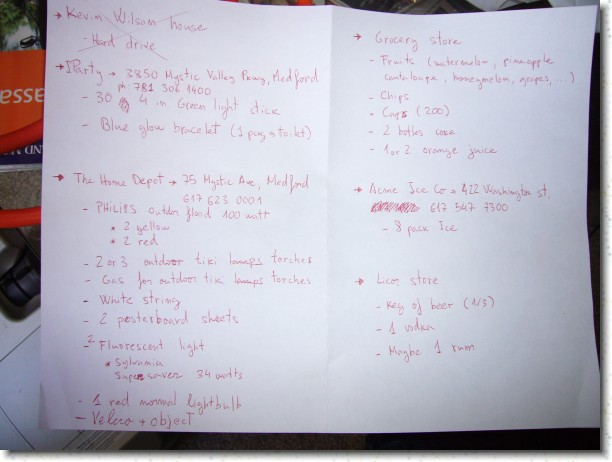 → Kevin Wilsom house
- Hard drive
→ IParty → 3850 Mystic Valley Pkwy, Medford
ph: 781 306 1400
- 30 4 in Green light stick
- Blue glow bracelet (1 pug stoilet)
→ The Home Depot → 75 Mystic Ave, Medford
617 623 0001
- PHILIPS outdor flood 100 watt
* 2 yellow
* 2 red
- 2 or 3 outdoor tiki lamps torches
- Gas for outdoor tiki lamps torches
- White string
- 2 posterboard sheets
- 2 Fluorescent light
* Sylvania
Super saver 34 watts
- 1 red normal lightbulb
- Velcro + object
→ Grocery store
- Fruits (watermelon, pineapple
cantaloupe, honeymelon, grapes, ...)
- Chips
- Cups (200)
- 2 botles coke
- 1 or 2 orange juice
→ Acme Ice Co → 422 Washington st.
617 547 7300
- 8 pack Ice
→ Licor store
- Key of beer (1/3)
- 1 vodka
- Maybe 1 rum
assa